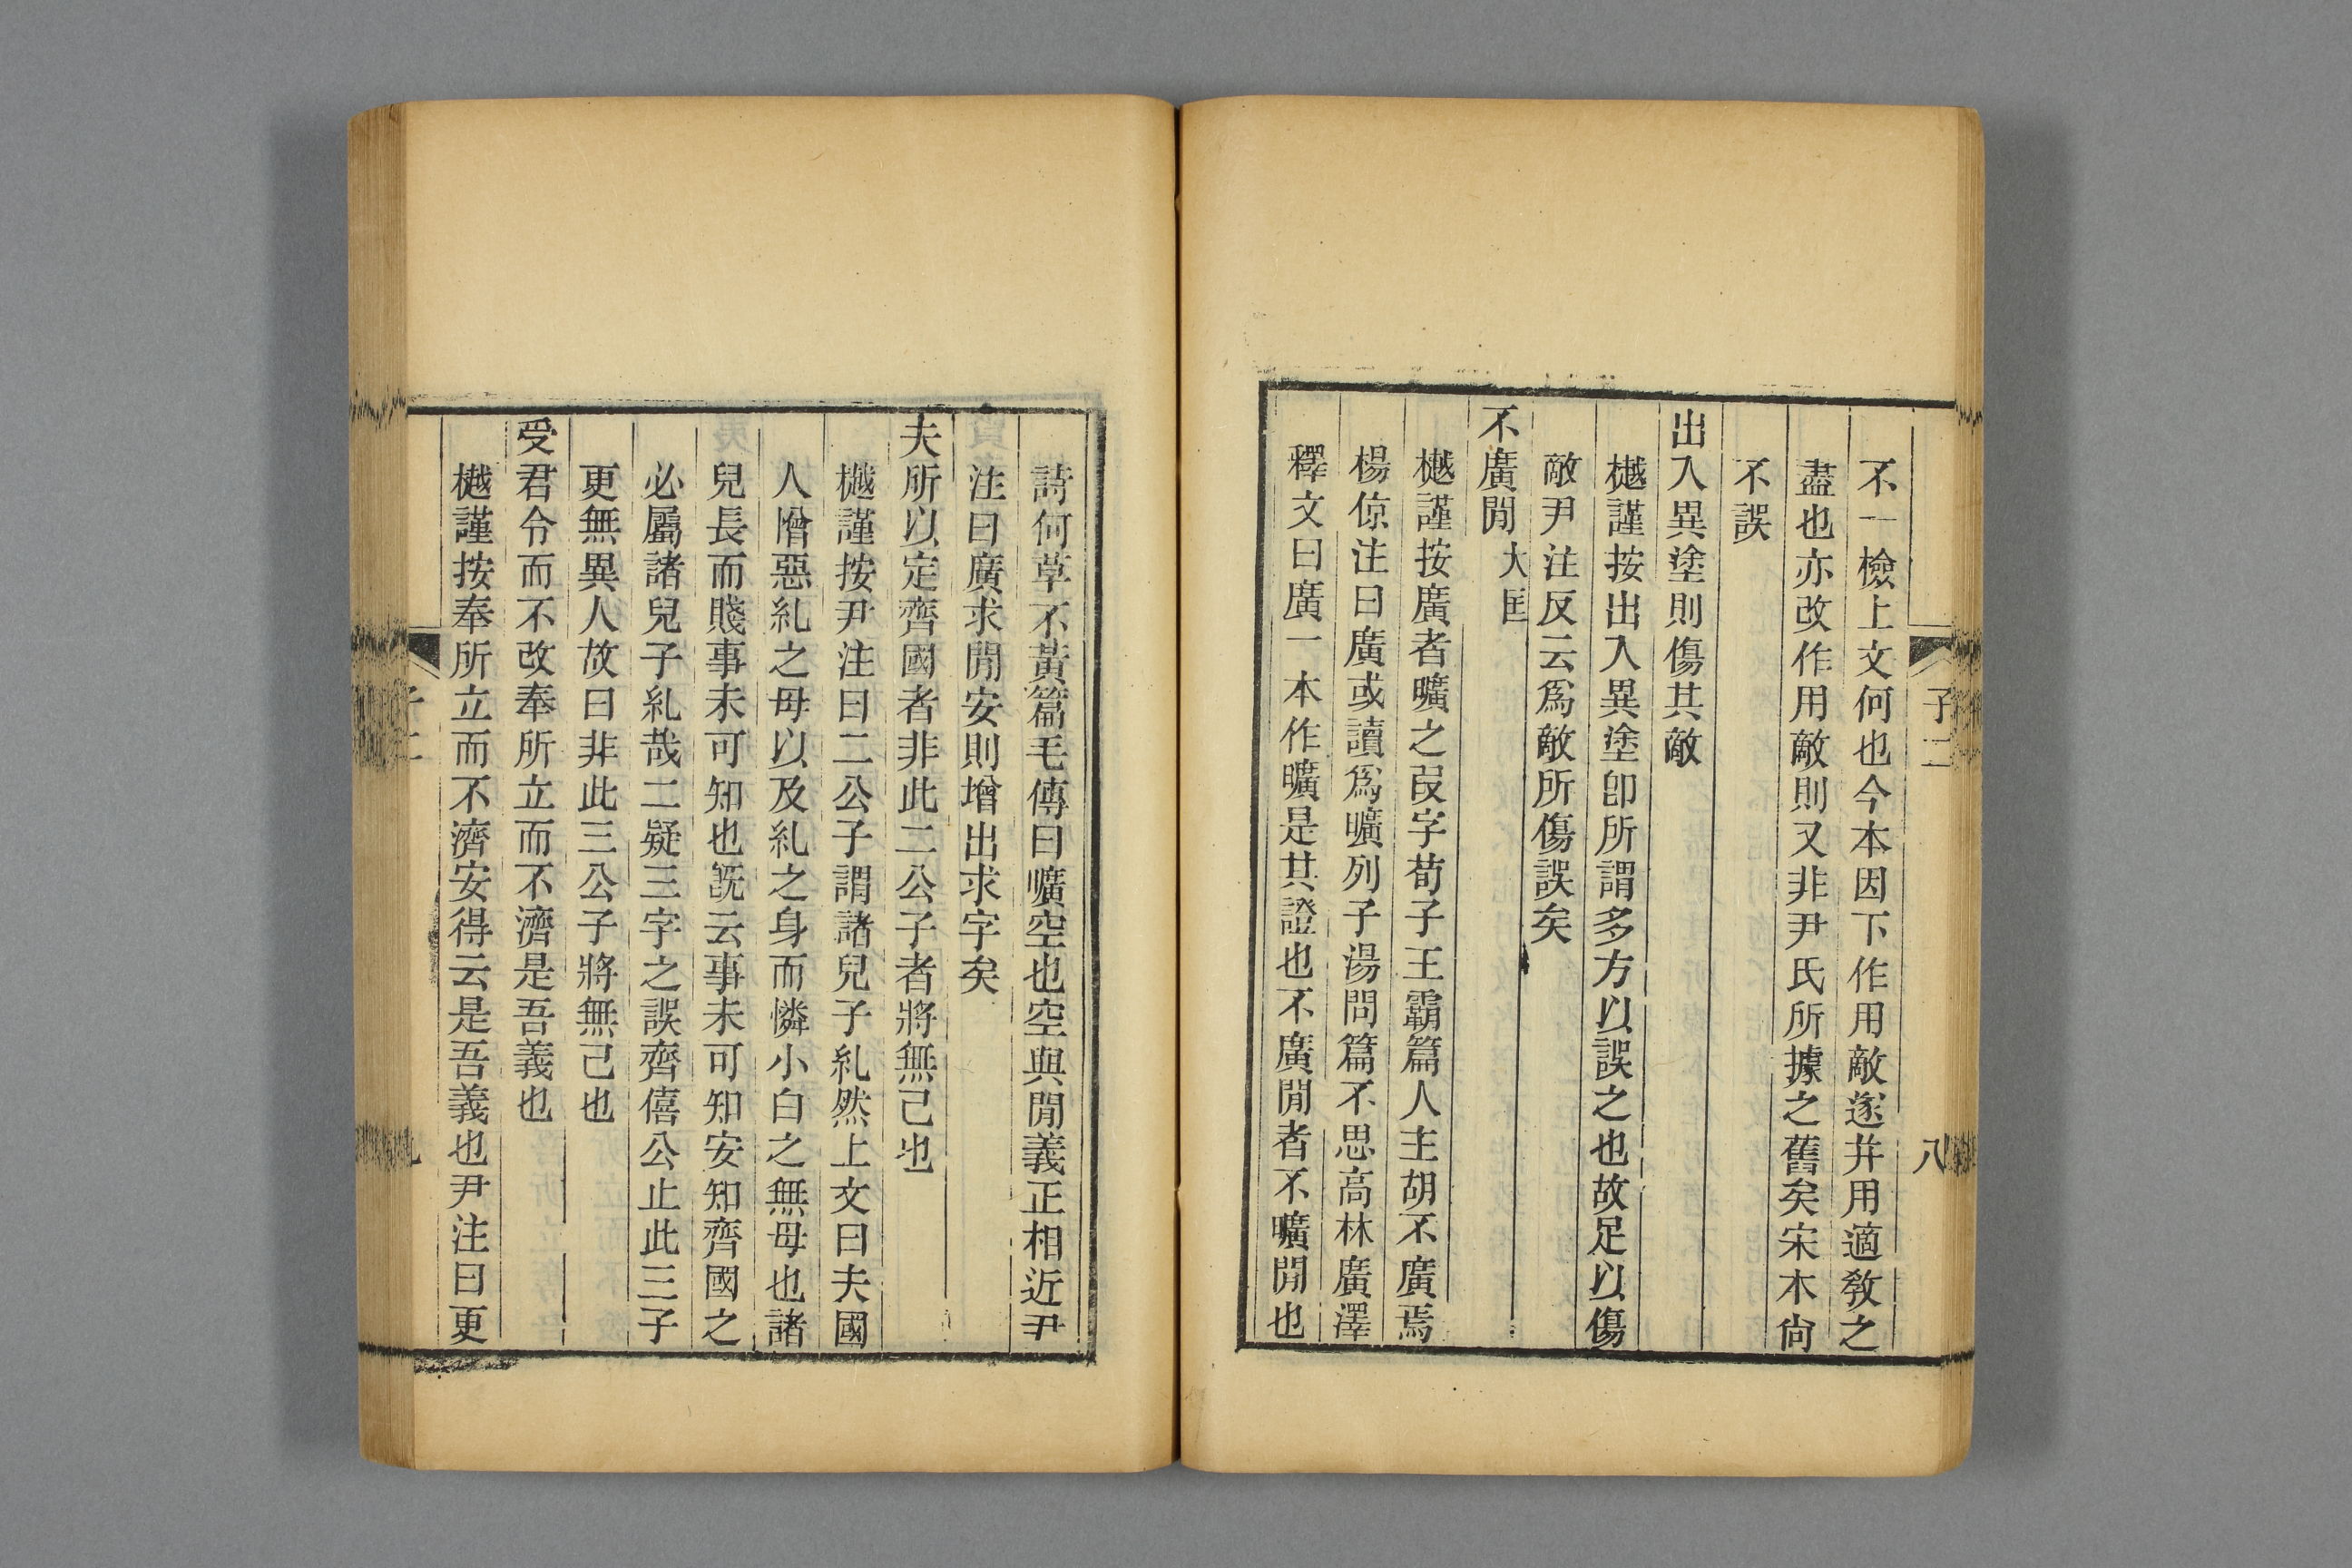 子二
八
不一檢上文何也今本因下作用敵遂幷用適敎之
盡也亦改作用敵則又非尹氏所據之舊矣宋本尙
不誤
出入異塗則傷其敵
樾謹按出入異塗卽所謂多方以誤之也故足以傷
敵尹注反云爲敵所傷誤矣
不廣閒 大匡
樾謹按廣者曠之叚字荀子王霸篇人主胡不廣焉
楊倞注曰廣或讀爲曠列子湯問篇不思高林廣澤
釋文曰廣一本作曠是其證也不廣閒者不曠閒也
詩何草不黃篇毛傳曰曠空也空與閒義正相近尹
注曰廣求閒安則增出求字矣
夫所以定齊國者非此二公子者將無己也
樾謹按尹注曰二公子謂諸兒子糺然上文曰夫國
人憎惡糺之母以及糺之身而憐小白之無母也諸
兒長而賤事未可知也旣云事未可知安知齊國之
必屬諸兒子糺哉二疑三字之誤齊僖公止此三子
更無異人故曰非此三公子將無己也
受君令而不改奉所立而不濟是吾義也
樾謹按奉所立而不濟安得云是吾義也尹注曰更
子二
九